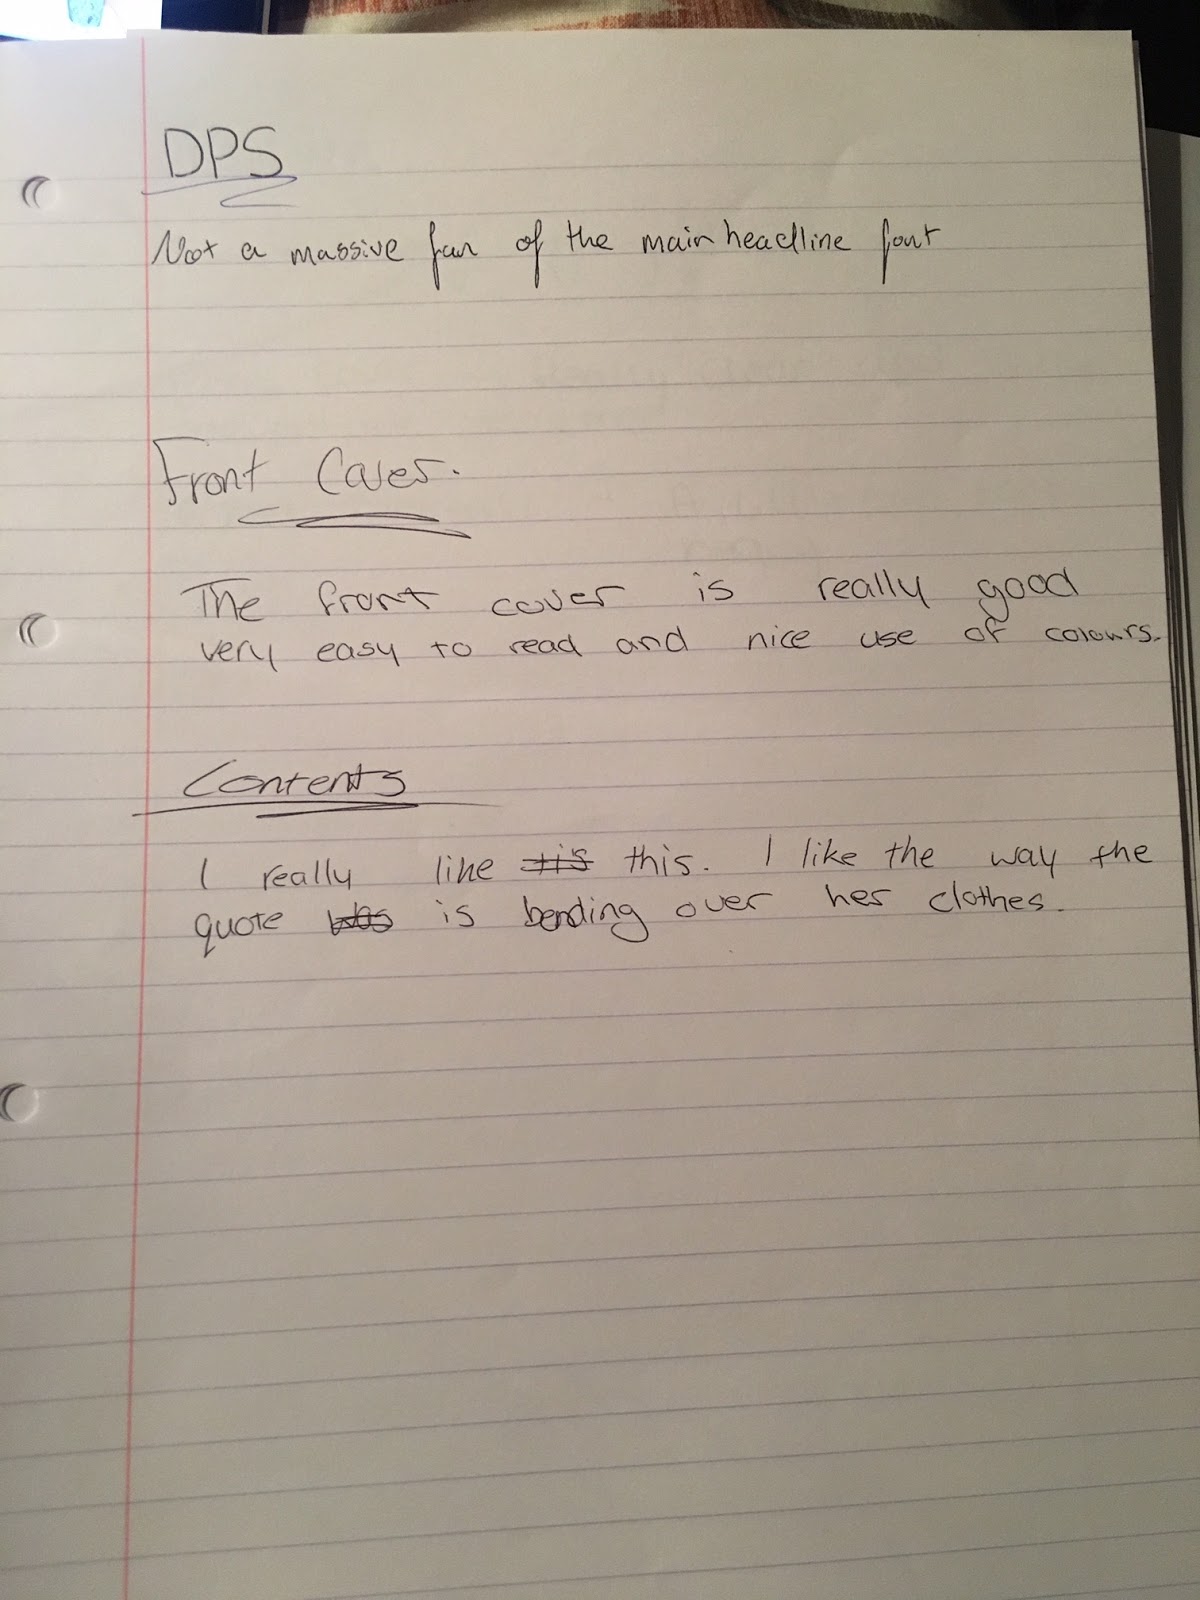 DPS
Not a massive fan of the main headline font
Front Cover.
The front cover is really good
very easy to read and nice use of colours.
Contents
I really like this. I like the way the
quote is bending over her clothes.